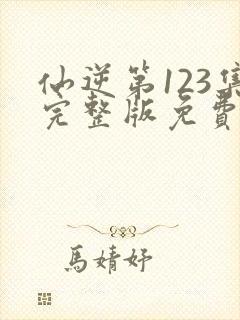 仙逆第123集
完整版免費
馬婧妤